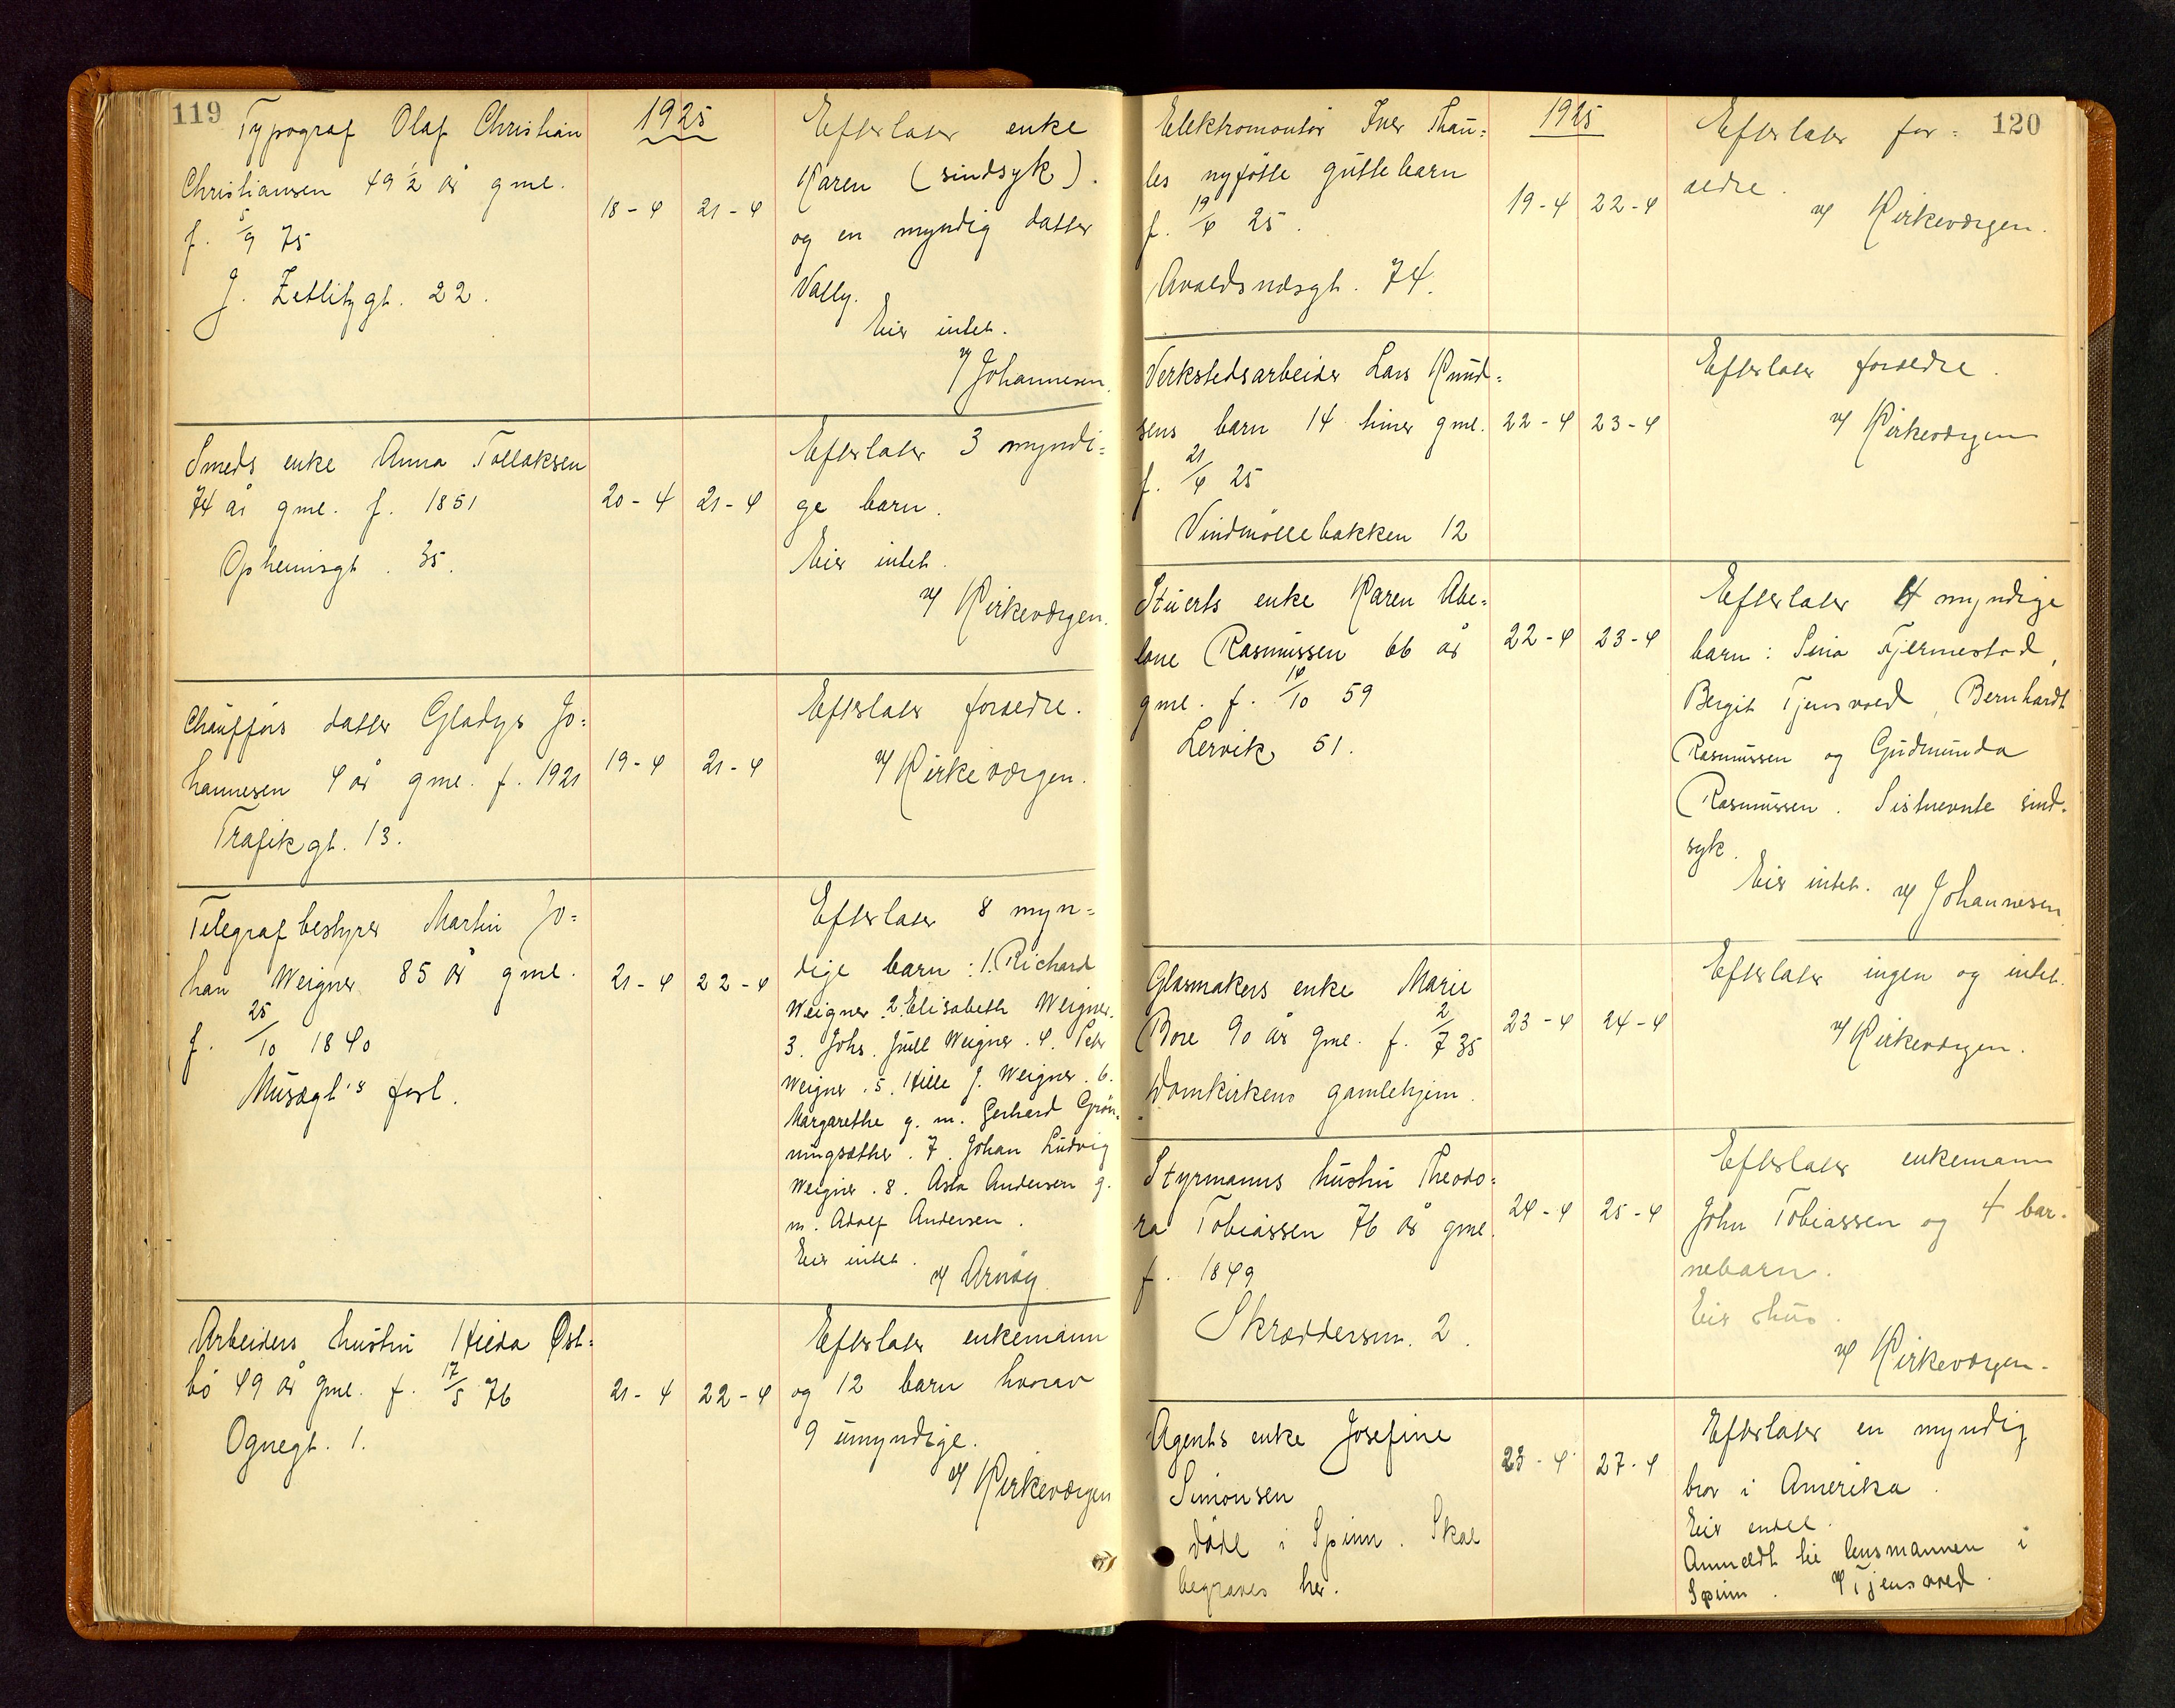 119
Typograf Olaf Christian
Christiansen 49 1/2 år gml.
f. 5/9 75
J. Zetlitzgt. 22.
1925
18-4 21-4
Efterlater enke
Karen (sindsyk).
og en myndig datter
Vally.
Eier intet.
v/ Johannesen.
Smeds enke Anna Tollaksen
74 år gml. f. 1851
Opheimsgt. 35.
20-4 21-4
Efterlater 3 myndi=
ge barn.
Eier intet.
v/ Kirkeværgen.
Chaufførs datter Gladys Jo=
hannesen 4 år gml. f. 1921
Trafikgt. 13.
19-4 21-4
Efterlater forældre.
v/ Kirkeværgen.
Telegrafbestyrer Martin Jo=
han Weigner 85 år gml.
f. 25/10 1840
Musægt's forl.
21-4 22-4
Efterlater 8 myn=
dige barn: 1. Richard
Weigner 2. Elisabeth Weigner.
3. Johs. Juell Weigner. 4. Peter
Weigner. 5. Hille J. Weigner. 6.
Margarethe g. m. Gerhard Grön=
ningsæther. 7. Johan Ludvig
Weigner. 8. Asta Andersen g.
m. Adolf Andersen.
Eier intet.
v/ Arnöy.
Arbeiders hustru Hilda Øst=
bö 49 år gml. f. 17/5 76
Ognegt. 1.
21-4 22-4
Efterlater enkemann
og 12 barn hvorav
9 umyndige.
v/ Kirkeværgen
120
Elektromontör Iver Thau=
les nyfötte guttebarn
f. 19/4 25.
Avaldsnesgt. 74.
1925
19-4 22-4
Efterlater for=
ældre.
v/ Kirkeværgen.
Verkstedsarbeider Lars Knud=
sens barn 14 timer gml.
f. 21/4 25
Vindmöllebakken 12
22-4 23-4
Efterlater forældre.
v/ Kirkeværgen
Stuerts enke Karen Abe=
lone Rasmussen 66 år
gml. f. 14/10 59
Lervik 51.
22-4 23-4
Efterlater 4 myndige
barn: Sina Tjermestad,
Bergit Tjensvold, Bernhardt
Rasmussen og Gudmunda
Rasmussen. Sistnevnte sind=
syk.
Eier intet. v/ Johannesen
Glasmakers enke Marie
Bore 90 år gml. f. 2/7 35
Domkirkens gamlehjem.
23-4 24-4
Efterlater ingen og intet.
v/ Kirkeværgen.
Styrmanns hustru Theodo=
ra Tobiassen 76 år gml.
f. 1849
Skræddersm. 2.
24-4 25-4
Efterlater enkemann
John Tobiassen og 4 bar=
nebarn.
Eier hus.
v/ Kirkeværgen.
Agents enke Josefine
Simonsen
död i Spinn. Skal
begraves her.
23-4 27-4
Efterlater en myndig
bror i Amerika.
Eier endel.
Anmeldt til lensmannen i
Spinn. v/ Tjensvold.